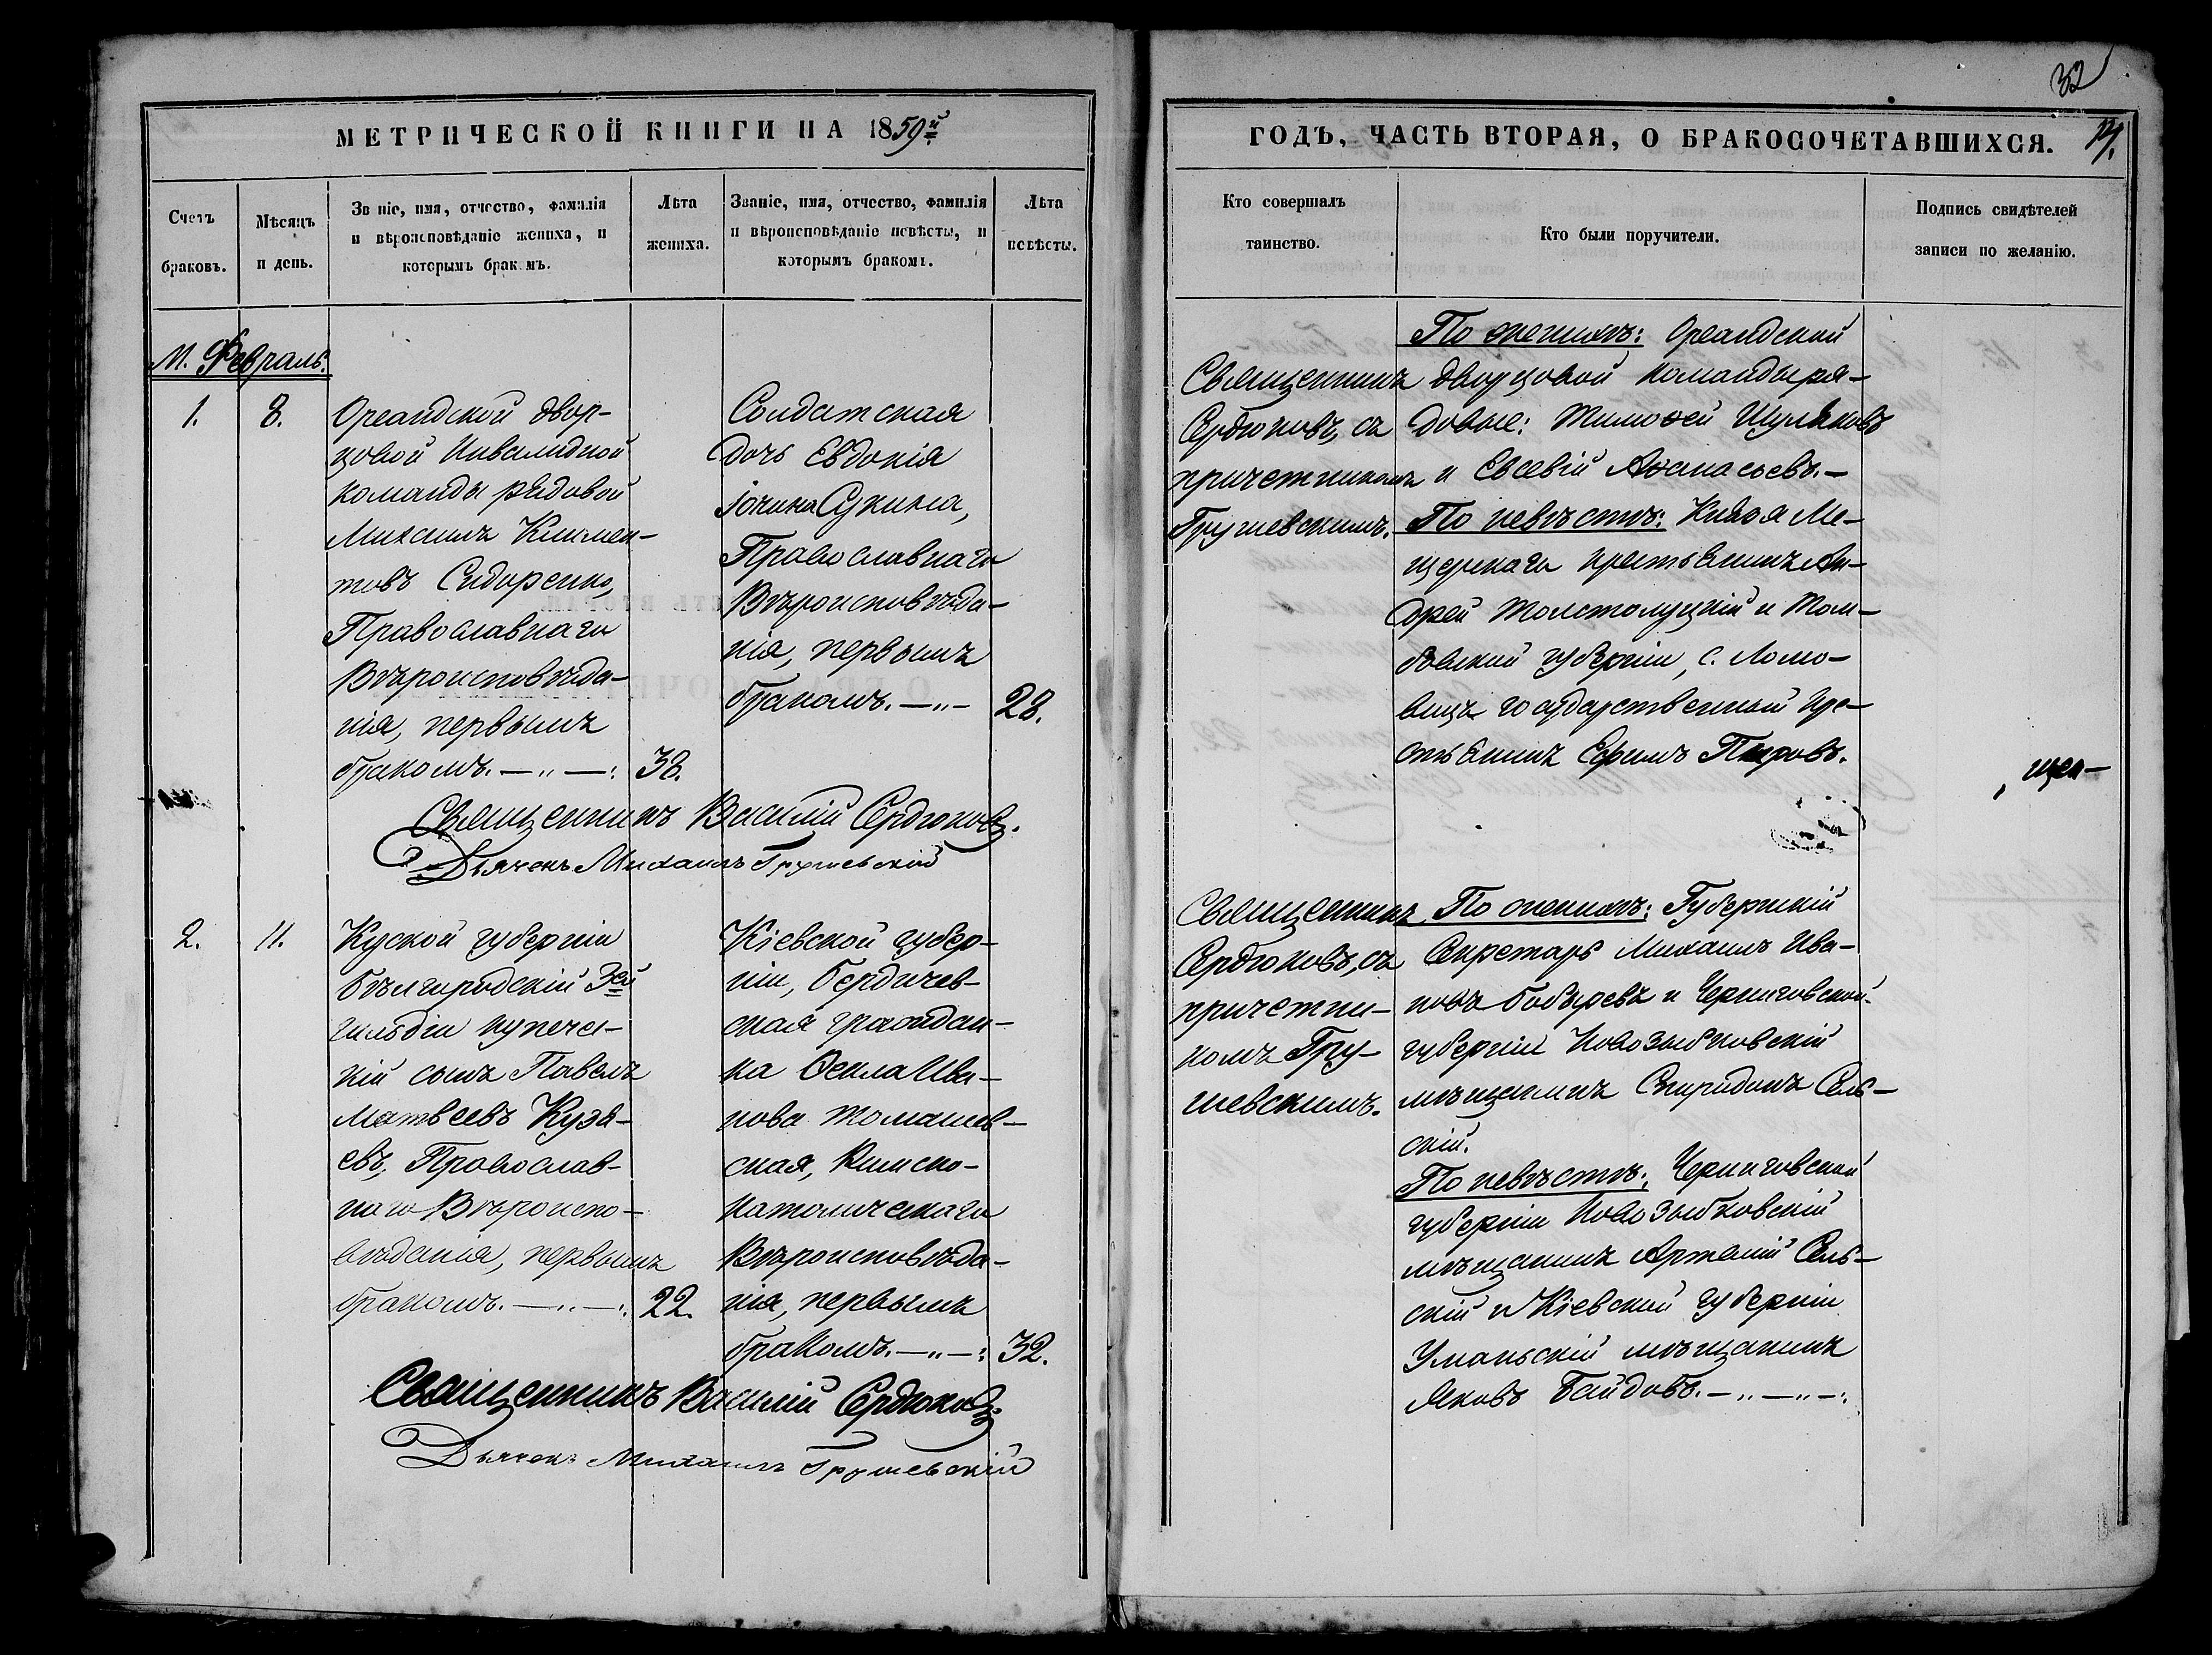 32
МЕТРИЧЕСКОЙ КНИГИ НА 1859й
ГОДЪ, ЧАСТЬ ВТОРАЯ, О БРАКОСОЧЕТАВШИХСЯ.
Счетъ
браковъ.
Мѣсяцъ
и день.
Званіе, имя, отчество, фамилія
и вѣроисповѣданіе жениха, и
которымъ бракомъ.
Лѣта
жениха.
Званіе, имя, отчество, фамилія
и вѣроисповѣданіе невѣсты, и
которымъ бракомъ.
Лѣта
невѣсты.
Кто совершалъ
таинство.
Кто были поручители.
Подпись свидѣтелей
записи по желанію.
М. Февраль.
1.
8.
Ореандской двор-
цовой Инвалидной
команды рядовой
Михаилъ Климен-
товъ Сидоренко,
Православнаго
Вѣроисповѣда-
нія, первымъ
бракомъ. — „ — :
38.
Солдатская
дочь Евдокія
Сукина,
Православнаго
Вѣроисповѣда-
нія, первымъ
бракомъ. — „ —
28.
Священникъ
Сердюковъ, съ
причетникомъ
Грушевскимъ.
По женихѣ: Ореандской
дворцовой команды ря-
довые: Тимоѳей Шуляковъ
и Евсевій Аѳанасьевъ. —
По невѣстѣ: Князя Ме-
щерскаго крестьянинъ Ан-
дрей Толстолуцкій и Там-
бовской губерніи, с. Ломо-
вицъ государственный кре-
стьянинъ Ефимъ Пировъ.
Священникъ Василій Сердюковъ.
Дьячекъ Михаилъ Грушевскій
2.
11.
Куской губерніи
Бѣлгородскій 3ей
гильдіи купечес-
кій сынъ Павелъ
Матвеевъ Кузв-
евъ, Православ-
наго Вѣроиспо-
вѣданія, первымъ
бракомъ. — „ — :
22.
Кіевской губер-
ніи, Бердичев-
ская граждан-
ка Ѳекла Ива-
нова Томашев-
ская, Римско-
католическаго
Вѣроисповѣда-
нія, первымъ
бракомъ. — „ — :
32.
Священникъ
Сердюковъ, съ
причетни-
комъ Гру-
шевскимъ.
По женихѣ: Губернскій
Секретарь Михаилъ Ива-
новъ Бобыревъ и Черниговской
губерніи Новозыбковскій
мѣщанинъ Спиридонъ Сель-
скій.
По невѣстѣ: Черниговской
губерніи Новозыбковскій
мѣщанинъ Артемій Сель-
скій и Кіевской губерніи
Уманьскій мѣщанинъ
Яковъ Байдовъ. — „ — „ — :
Священникъ Василій Сердюковъ.
Дьячекъ Михаилъ Грушевскій